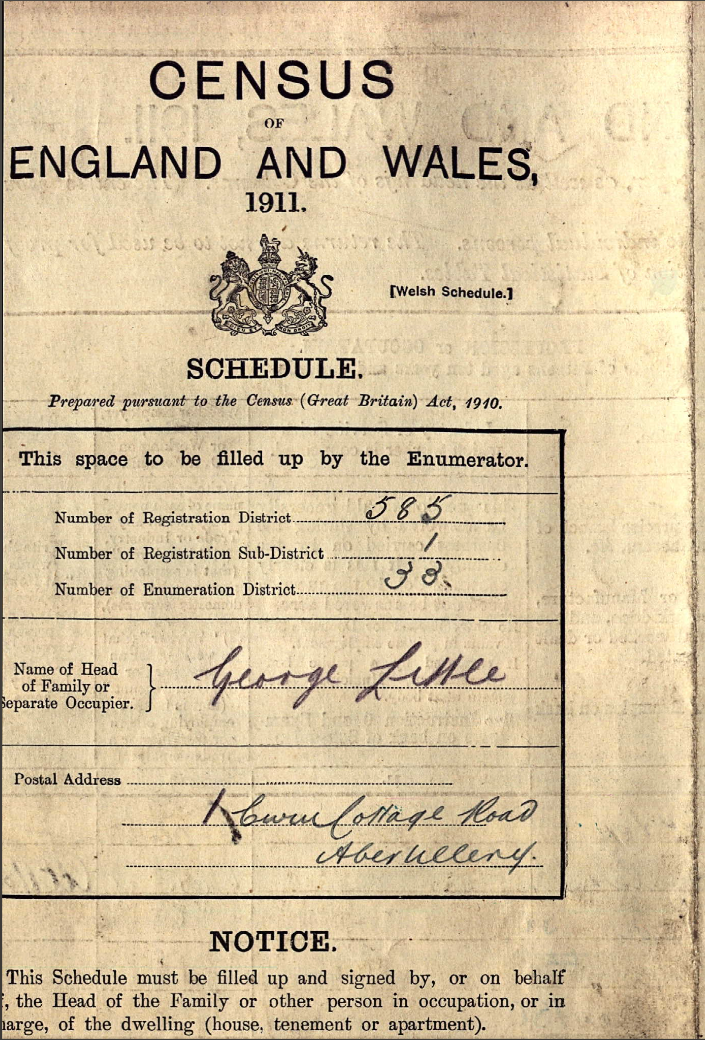 CENSUS
OF
ENGLAND AND WALES,
1911.
[Welsh Schedule.]
SCHEDULE.
Prepared pursuant to the Census (Great Britain) Act, 1910.
This space to be filled up by the Enumerator.
Number of Registration District 585
Number of Registration Sub-District 1
Number of Enumeration District 33
Name of Head
of Family or
Separate Occupier.
George Little
Postal Address
1 Cwm Cottage Road
Abertillery.
NOTICE.
This Schedule must be filled up and signed by, or on behalf
, the Head of the Family or other person in occupation, or in
harge, of the dwelling (house, tenement or apartment).